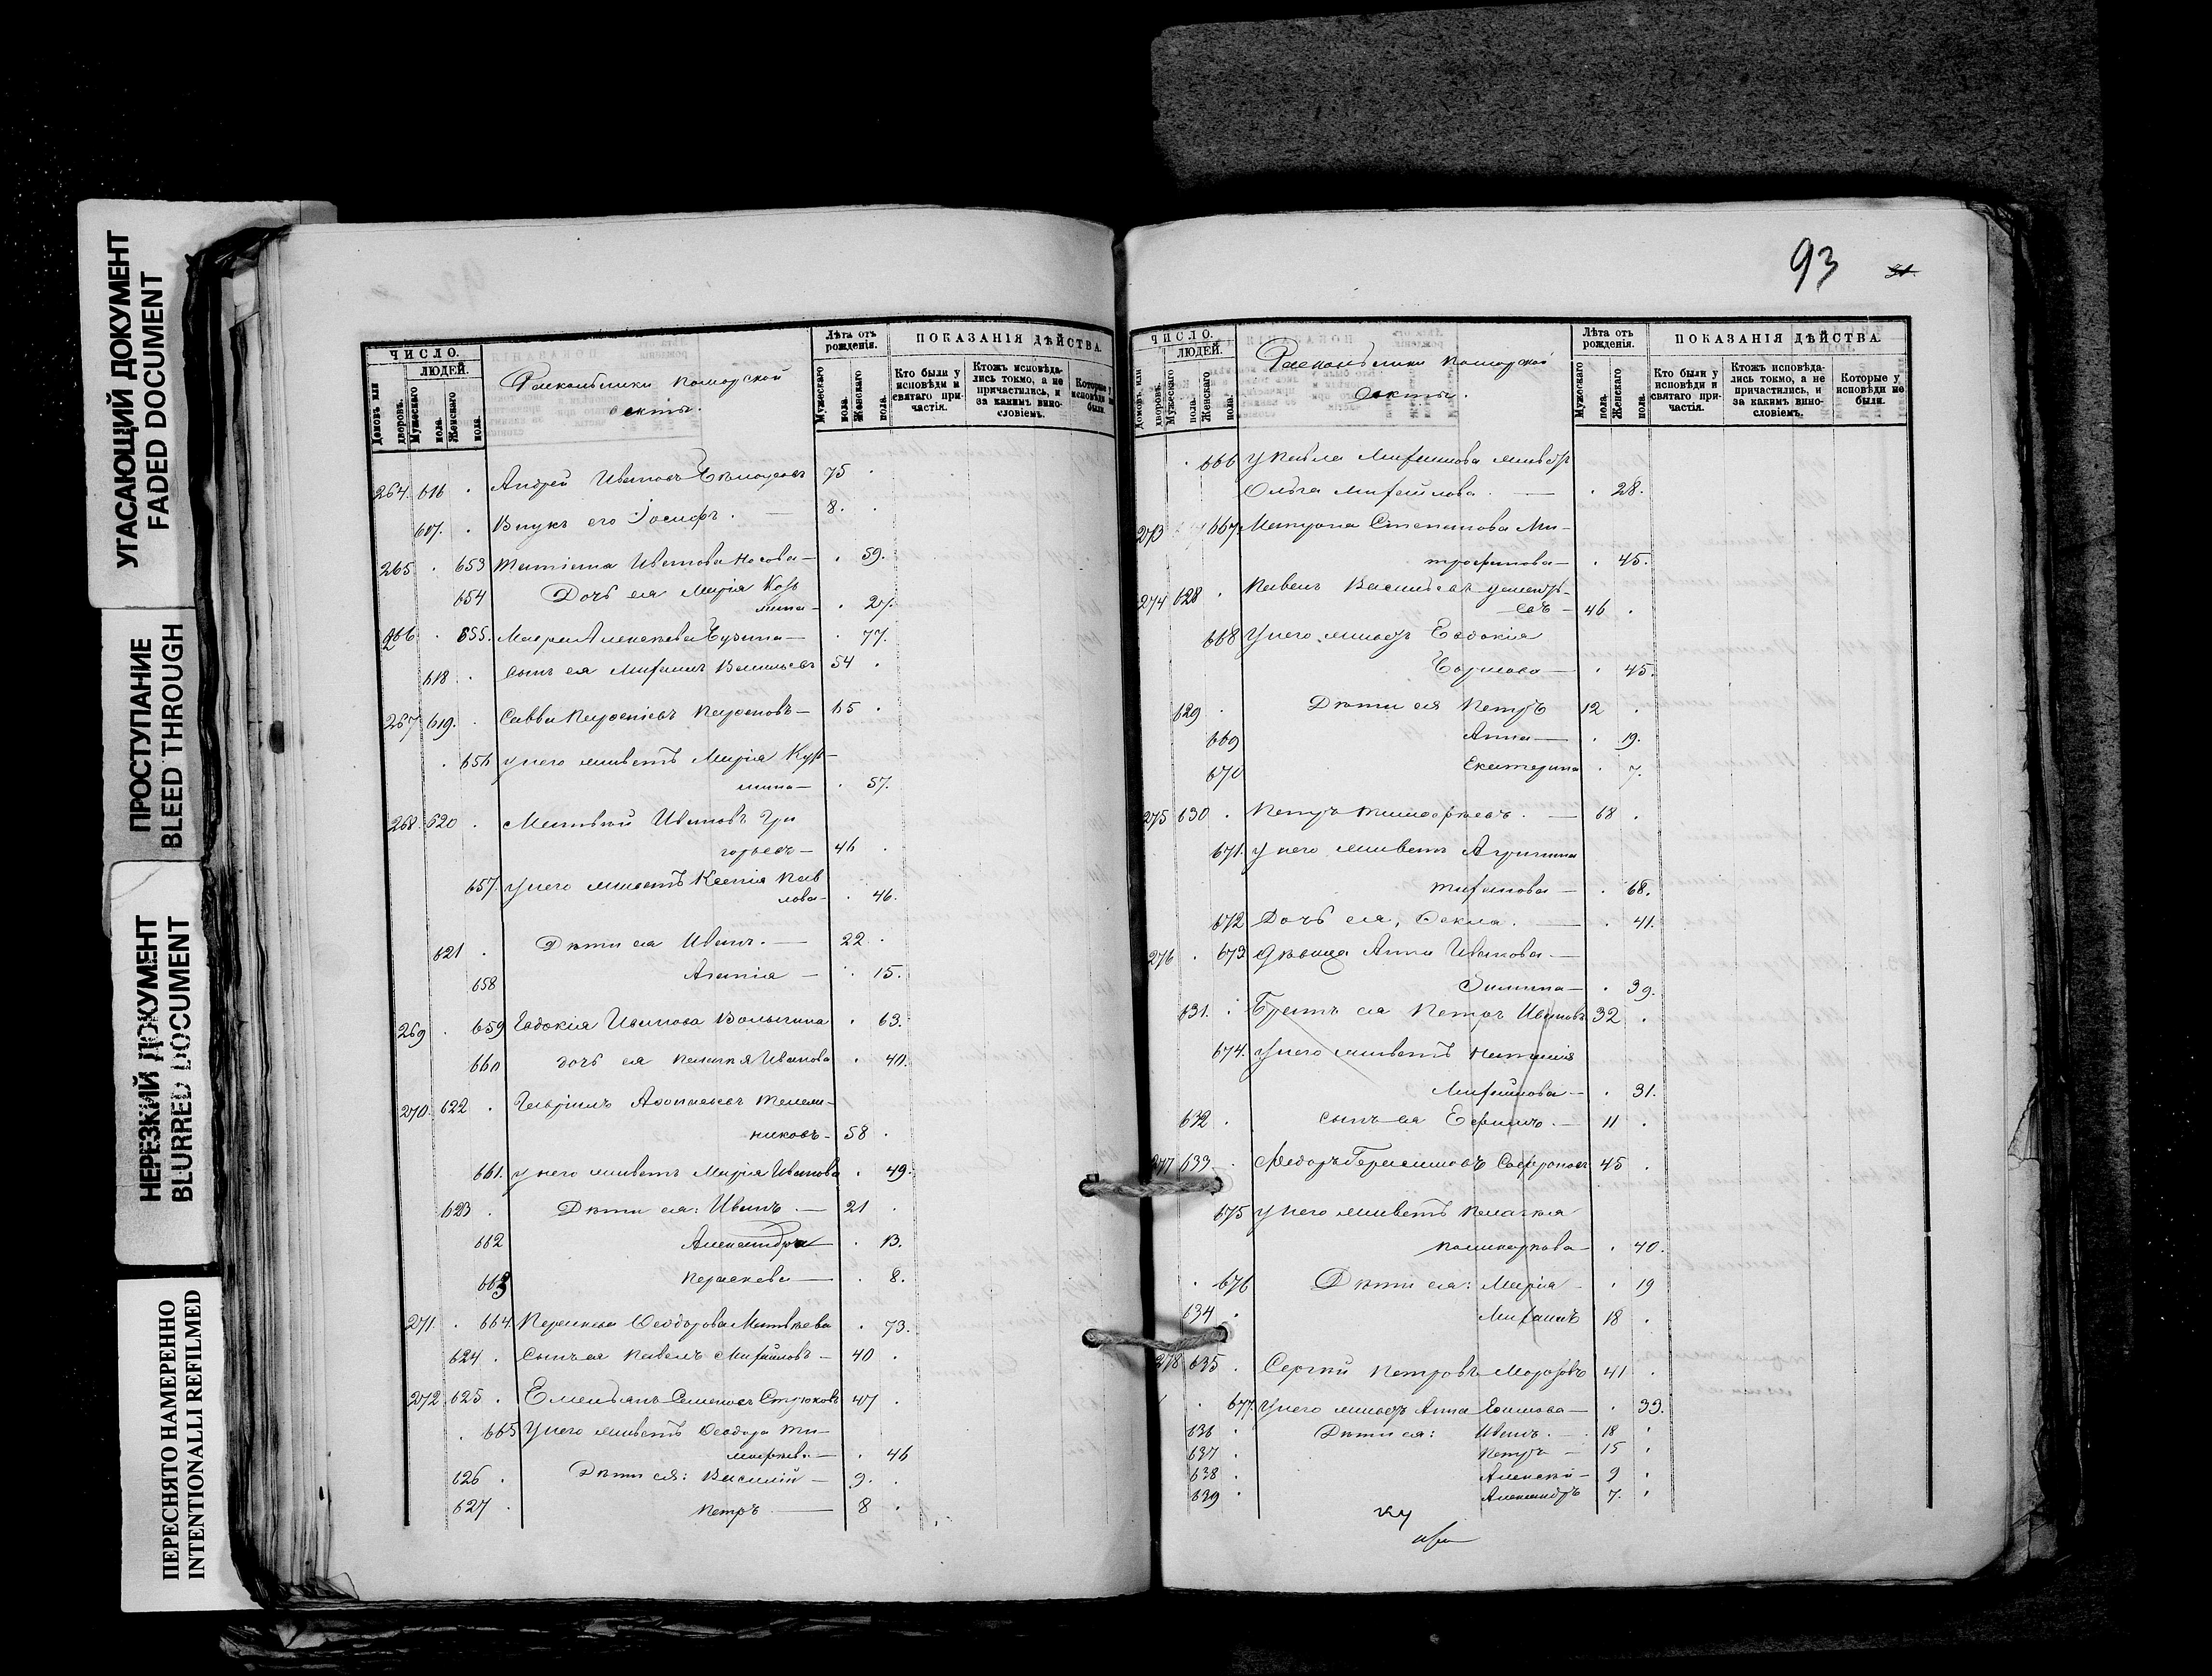 УГАСАЮЩИЙ ДОКУМЕНТ
FADED DOCUMENT
ПРОСТУПАНИЕ
BLEED THROUGH
НЕРЕЗКИЙ ДОКУМЕНТ
BLURRED DOCUMENT
ПЕРЕСНЯТО НАМЕРЕННО
INTENTIONALLI REFILMED
ЧИСЛО.
ЛЮДЕЙ.
Домовъ или дворовъ.
Мужескаго пола.
Женскаго пола.
Раскольники поморской
секты.
Лѣта отъ рожденія.
Мужескаго пола.
Женскаго пола.
ПОКАЗАНІЯ ДѢЙСТВА.
Кто были у исповѣди и святаго причастія.
Ктожъ исповѣдались токмо, а не причастились, и за какимъ винословіемъ.
Которые у исповѣди не были.
264. 616 . Андрей Ивановъ 75 .
617. . Внукъ его Іосифъ. — 8. .
265 . 653 Татіана Иванова Носова — . 59.
654 Дочь ея Марія Козь
мина — . 27.
266 . 655. Мавра Алексѣева — . 77.
618 . сынъ ея Михаилъ Васильевъ 54 .
267 619. . Савва Парѳеніевъ Парѳеновъ — 65 .
. 656 у него живетъ Марія Кузь-
мина — . 57.
268. 620 . Матвѣй Ивановъ Гри
горьевъ — 46 .
657. у него живетъ Ксенія Пав
лова — . 46.
621 . Дѣти ея Иванъ. — 22 .
658 Агапія — . 15.
269 . 659 Евдокія Иванова Волынина . 63.
660 дочь ея Пелагія Иванова . 40.
270. 622 . Гавріилъ Аѳонасьевъ
никовъ — 58 .
661. у него живетъ Марія Иванова . 49.
623 . Дѣти ея: Иванъ. — 21 .
662 Александра — . 13.
663 Параскева — . 8.
271. . 664. Параскева Ѳеодорова Матвѣева . 73.
624 . Сынъ ея Павелъ Михайловъ — 40 .
272 625 . Емельянъ Семеновъ Стрюковъ 47 .
. 665 У него живетъ Ѳеодора Ти-
моѳеева — . 46
626 . Дѣти ея: Василій — 9. .
627 . Петръ. — 8 .
93
ЧИСЛО.
ЛЮДЕЙ.
Домовъ или дворовъ.
Мужескаго пола.
Женскаго пола.
Раскольники поморской
секты.
Лѣта отъ рожденія.
Мужескаго пола.
Женскаго пола.
ПОКАЗАНІЯ ДѢЙСТВА.
Кто были у исповѣди и святаго причастія.
Ктожъ исповѣдались токмо, а не причастились, и за какимъ винословіемъ.
Которые у исповѣди не были.
. 666 у Павла Михайлова живетъ
Ольга Михайлова. — . 28.
273 667. Матрона Степанова Ми-
трофанова — . 45.
274 628 . Павелъ Васильевъ
46 .
668 У него живетъ Евдокія
— . 45.
629 . Дѣти ея Петръ 12 .
669 Анна — . 19.
670 Екатерина . 7.
275 630 . Петръ Тимоѳеевъ. — 68 .
671. у него живетъ Агрипина
— . 68.
672 Дочь ея, Ѳекла. — . 41.
276 . 673 дѣвица Анна Иванова —
Зимина — . 39.
631. . Братъ ея Петръ Ивановъ 32 .
674. У него живетъ Наталія
Михайлова — . 31.
632 . сынъ ея Ефимъ. — 11 .
277 633 . Ѳедоръ Герасимовъ Софроновъ 45 .
675 у него живетъ Пелагія
Поликарпова — . 40.
. 676 Дѣти ея: Марія — . 19
634 . Михаилъ 18 .
278 635 . Сергій Петровъ Морозовъ 41 .
. 677. У него живетъ Анна Ефимова — . 33.
636 . Дѣти ея: Иванъ. — . 18 .
637 . Петръ — 15 .
638 . Алексѣй — 9 .
639 . Александръ 7. .